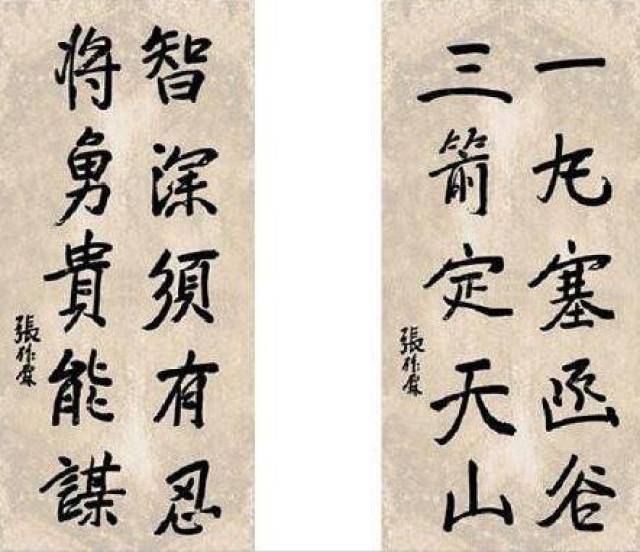 一丸塞函谷
三箭定天山
張作霖
智深須有忍
将勇貴能謀
張作霖